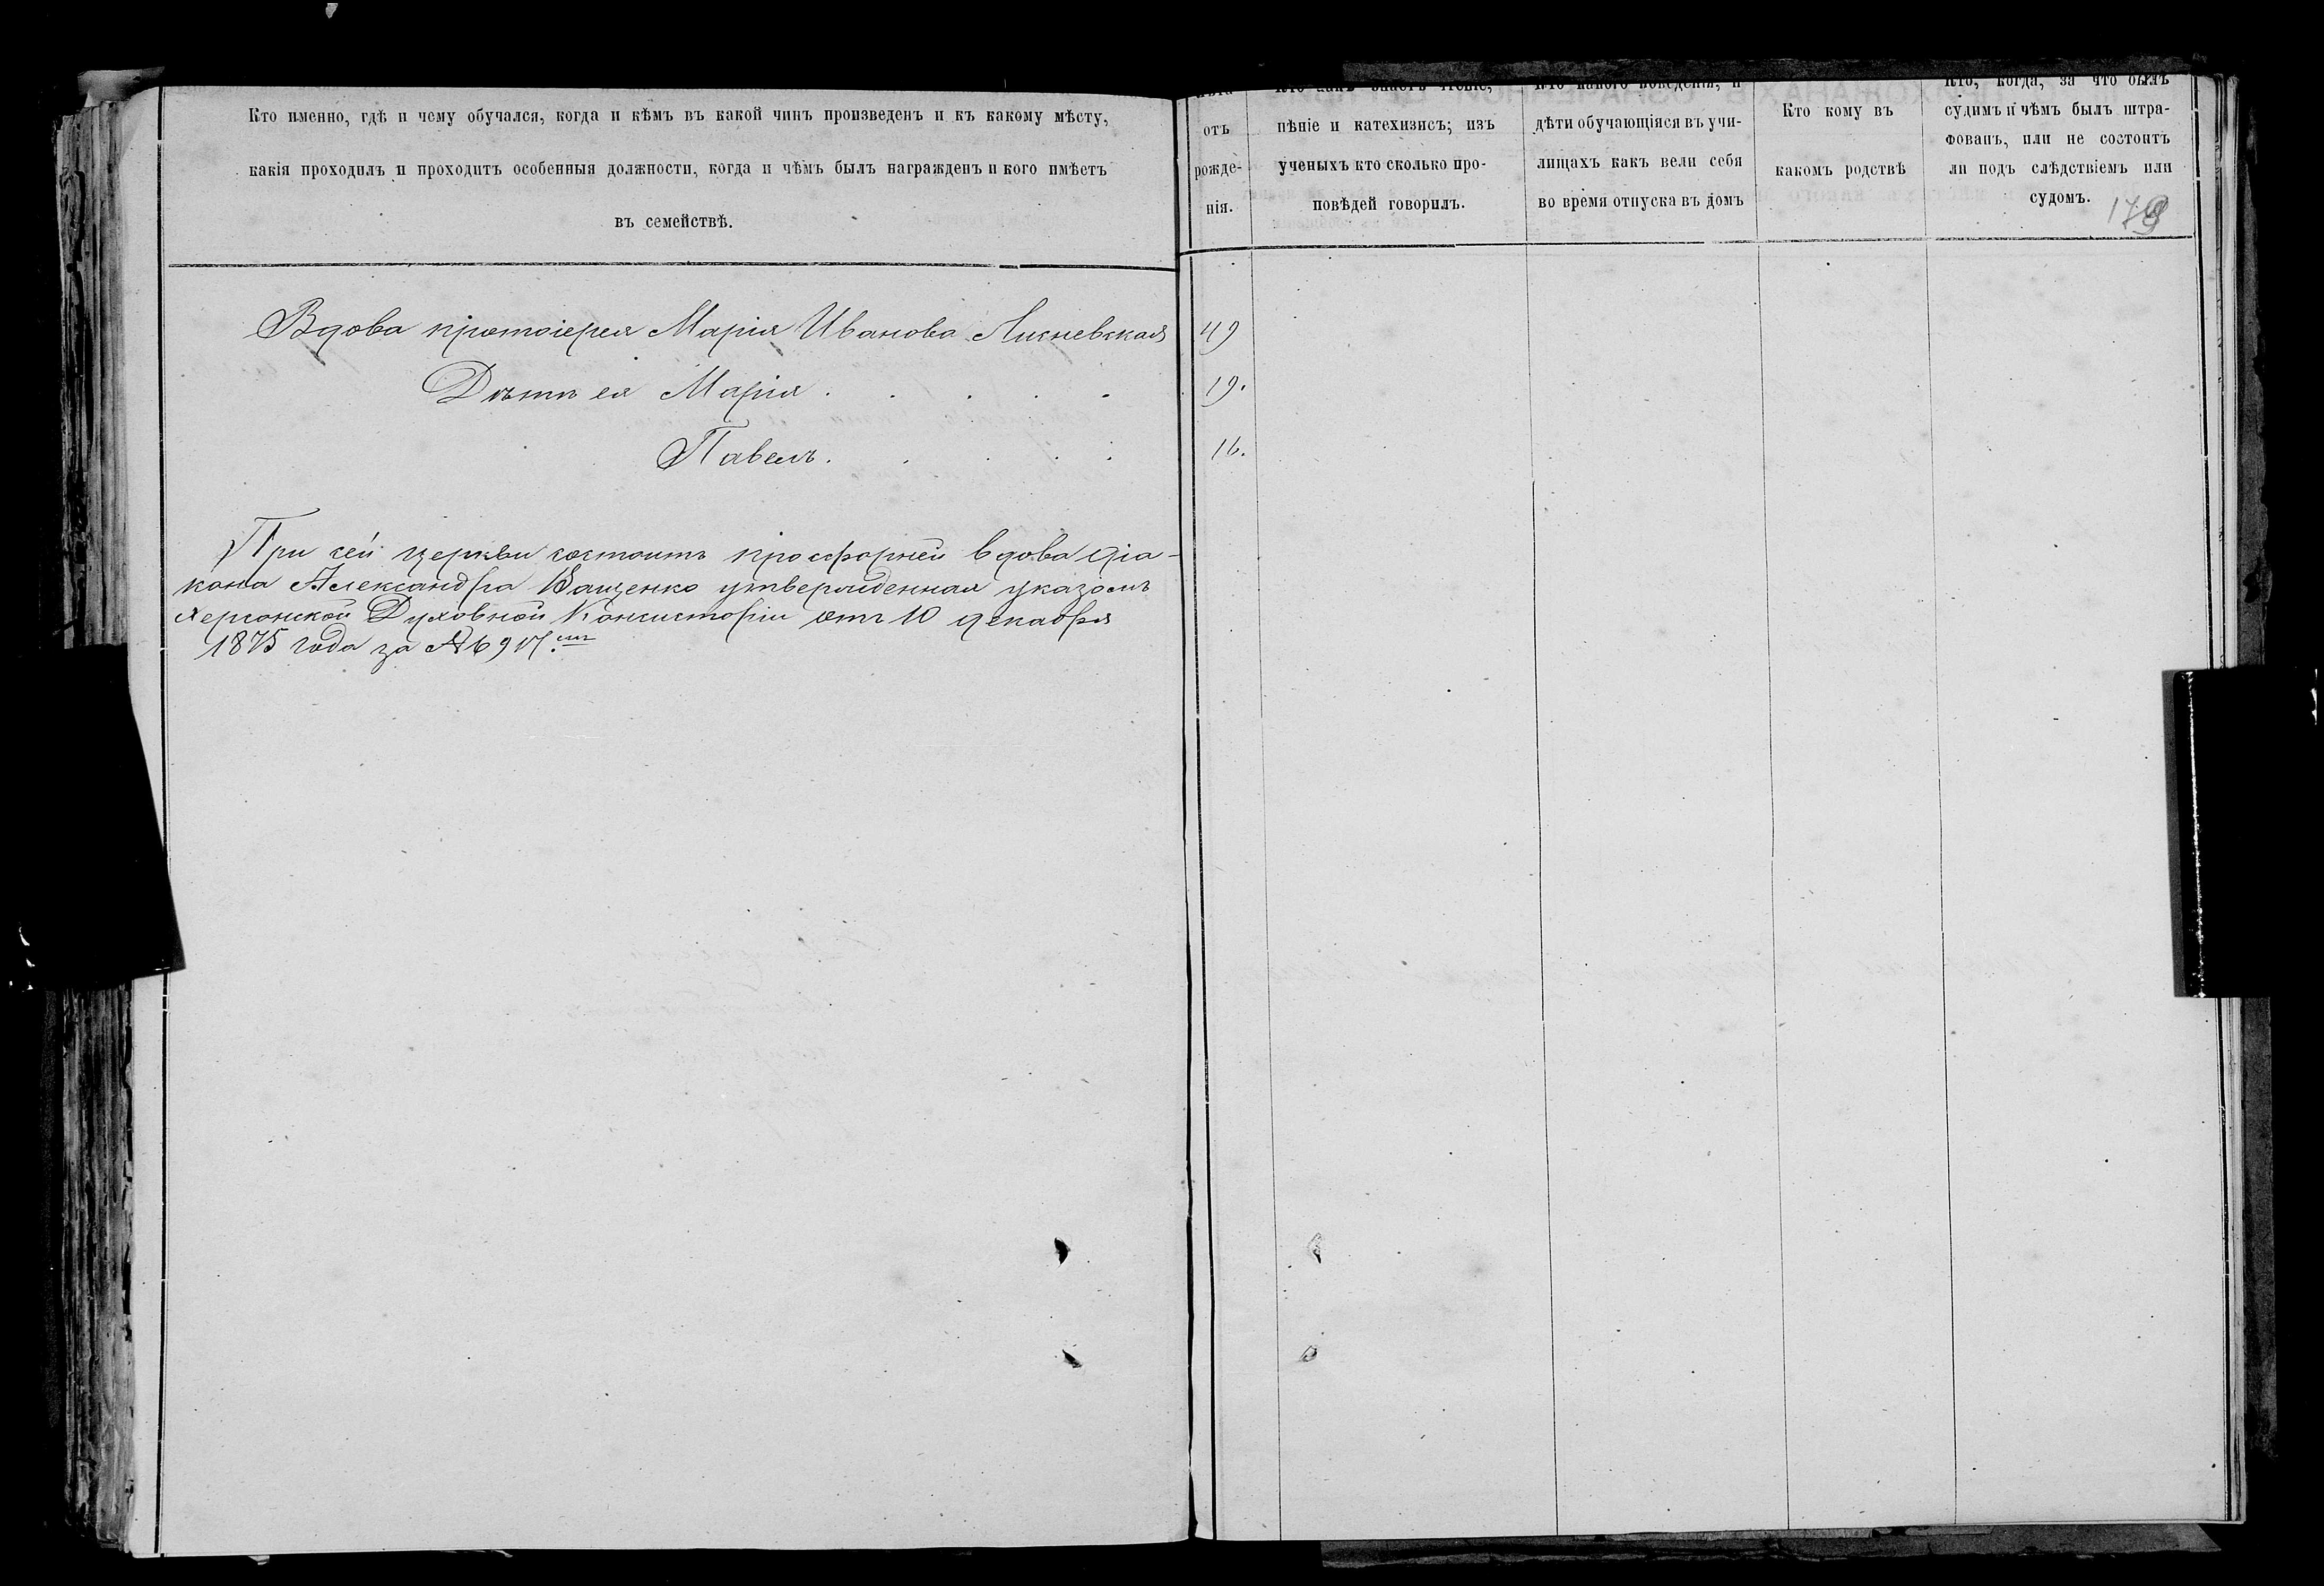 Кто именно, гдѣ и чему обучался, когда и кѣмъ въ какой чинъ произведенъ и къ какому мѣсту,
какія проходилъ и проходитъ особенныя должности, когда и чѣмъ былъ награжденъ и кого имѣетъ
въ семействѣ.
Вдова протоіерея Марія Иванова Лисневская
Дѣти ея Марія . . . . .
Павелъ. . . . .
При сей церкви состоитъ просфорней вдова діа-
кона Александра Ващенко утвержденная указомъ
Херсонской Духовной Консисторіи отъ 10 декабря
1875 года за №
отъ
рожде-
нія.
49
19.
16.
Кто какъ знаетъ чтеніе,
пѣніе и катехизисъ; изъ
ученыхъ кто сколько про-
повѣдей говорилъ.
Кто какого поведенія, и
дѣти обучающіяся въ учи-
лищахъ какъ вели себя
во время отпуска въ домъ
Кто кому въ
какомъ родствѣ
Кто, когда, за что былъ
судимъ и чѣмъ былъ штра-
фованъ, или не состоитъ
ли подъ слѣдствіемъ или
судомъ.